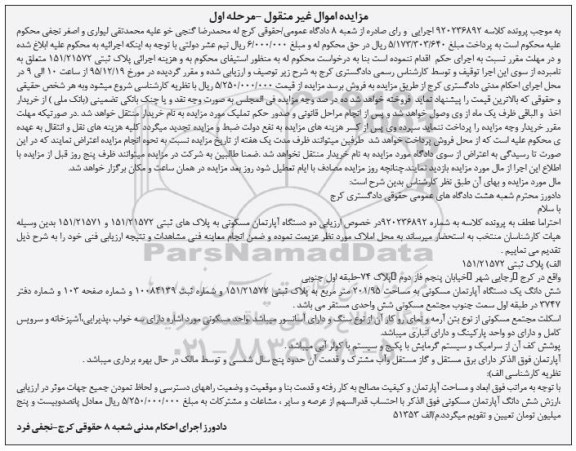 مزایده اموال غیر منقول -مرحله اول
به موجب پرونده کلاسه ۹۲۰۲۳۶۸۹۲ اجرایی و رای صادره از شعبه ۸ دادگاه عمومی/حقوقی کرج له محمدرضا گنجی خو علیه محمدتقی لیواری و اصغر نجفی محکوم
علیه محکوم است به پرداخت مبلغ ۵/۱۷۳/۳۰۳/۶۴۰ ریال در حق محکوم له و مبلغ ۶/۰۰۰/۰۰۰ ریال نیم عشر دولتی با توجه به اینکه اجرائیه به محکوم علیه ابلاغ شده
و در مهلت مقرر نسبت به اجرای حکم اقدام ننموده است بنا به درخواست محکوم له به منظور استیفای محکوم به و هزینه اجرائی پلاک ثبتی ۱۵۱/۲۱۵۷۲ متعلق به
نامبرده از سوی این اجرا توقیف و توسط کارشناس رسمی دادگستری کرج به شرح زیر توصیف و ارزیابی شده و مقرر گردیده در مورخ ۹۵/۱۲/۱۹ از ساعت ۱۰ الی ۹ در
محل اجرای احکام مدنی دادگستری کرج از طریق مزایده به فروش برسد مزایده از قیمت ۵/۲۵۰/۰۰۰/۰۰۰ ریال با نظریه کارشناسی شروع میشود وبه هر شخص حقیقی
و حقوقی که بالاترین قیمت را پیشنهاد نماید فروخته خواهد شد ده در صد وجه مزایده فی المجلس به صورت وجه نقد و یا چنک بانکی تضمینی (بانک ملی ) از خریدار
اخذ و الباقی ظرف یک ماه از وی وصول خواهد شد و پس از انجام مراحل قانونی و صدور حکم تملیک مورد مزایده به نام خریدار منتقل خواهد شد .در صورتیکه مهلت
مقرر خریدار وجه مزایده را پرداخت ننماید سپرده وی پس از کسر هزینه های مزایده به نفع دولت ضبط و مزایده تجدید میگردد کلیه هزینه های نقل و انتقال به عهده
ی محکوم علیه است که از محل فروش پرداخت خواهد شد طرفین میتوانند ظرف مدت یک هفته از تاریخ مزایده نسبت به نحوه انجام مزایده اعتراض نمایند که در این
صورت تا رسیدگی به اعتراض از سوی دادگاه مورد مزایده به نام خریدار منتقل نخواهد شد .ضمنا طالبین به شرکت در مزایده میتوانند ظرف پنج روز قبل از مزایده با
اطلاع این اجرا از مال مورد مزایده بازدید نمایند.چنانچه روز مزایده مصادف با ایام تعطیل شود روز بعد مزایده در همان ساعت و مکان برگزار خواهد شد.
مال مورد مزایده و بهای آن طبق نظر کارشناس بدین شرح است:
دادورز محترم شعبه هشت دادگاه های عمومی حقوقی دادگستری کرج
با سلام
احتراما عطف به پرونده کلاسه به شماره ۹۲۰۲۳۶۸۹۲در خصوص ارزیابی دو دستگاه آپارتمان مسکونی به پلاک های ثبتی ۱۵۱/۲۱۵۷۲ و ۱۵۱/۲۱۵۷۱ بدین وسیله
هیات کارشناسان منتخب به استحضار میرساند به محل املاک مورد نظر عزیمت نموده و ضمن انجام معاینه فنی مشاهدات و نتیجه ارزیابی فنی خود را به شرح ذیل
تقدیم می نماییم .
الف) پلاک ثبتی ۱۵۱/۲۱۵۷۲
واقع در کرج رجایی شهر خیابان پنجم فاز دوم پلاک ۷۴-طبقه اول جنوبی
شش دانگ یک دستگاه آپارتمان مسکونی به مساحت ۲۰۱/۹۵ متر مربع به پلاک ثبتی ۱۵۱/۲۱۵۷۲ و شماره ثبت ۱۰۰۸۴۱۴۹ و شماره صفحه ۱۰۳ و شماره دفتر
۳۷۴۷ در طبقه اول سمت جنوب مجتمع مسکونی شش واحدی مستقر می باشد .
اسکلت مجتمع مسکونی از نوع بتن آرمه و نمای رو کار آن از نوع سنگ و دارای آسانسور میباشد واحد مسکونی مورد اشاره دارای سه خواب ،پذیرایی،آشپزخانه و سرویس
کامل و دارای دو واحد پارکینگ و دارای انباری میباشد.
پوشش کف آن از سرامیک و سیستم گرمایش با پکیج و سیستم با کولر آبی میباشد .
آپارتمان فوق الذکر دارای برق مستقل و گاز مستقل وآب مشترک و قدمت آن حدود پنج سال شمسی و توسط مالک در حال بهره برداری میباشد .
نظریه کارشناسی الف):
با توجه به مراتب فوق ابعاد و مساحت آپارتمان و کیفیت مصالح به کار رفته و قدمت بنا و موقعیت و وضعیت راههای دسترسی و لحاظ نمودن جمیع جهات موثر در ارزیابی
،ارزش شش دانگ آپارتمان مسکونی فوق الذکر با احتساب قدرالسهم از عرصه و سایر ، مشاعات و مشترکات به مبلغ ۵/۲۵۰/۰۰۰/۰۰۰ ریال معادل پانصدوبیست و پنج
میلیون تومان تعیین و تقویم میگردد.م/الف ۵۱۳۵۳
دادورز اجرای احکام مدنی شعبه ۸ حقوقی کرج-نجفی فرد